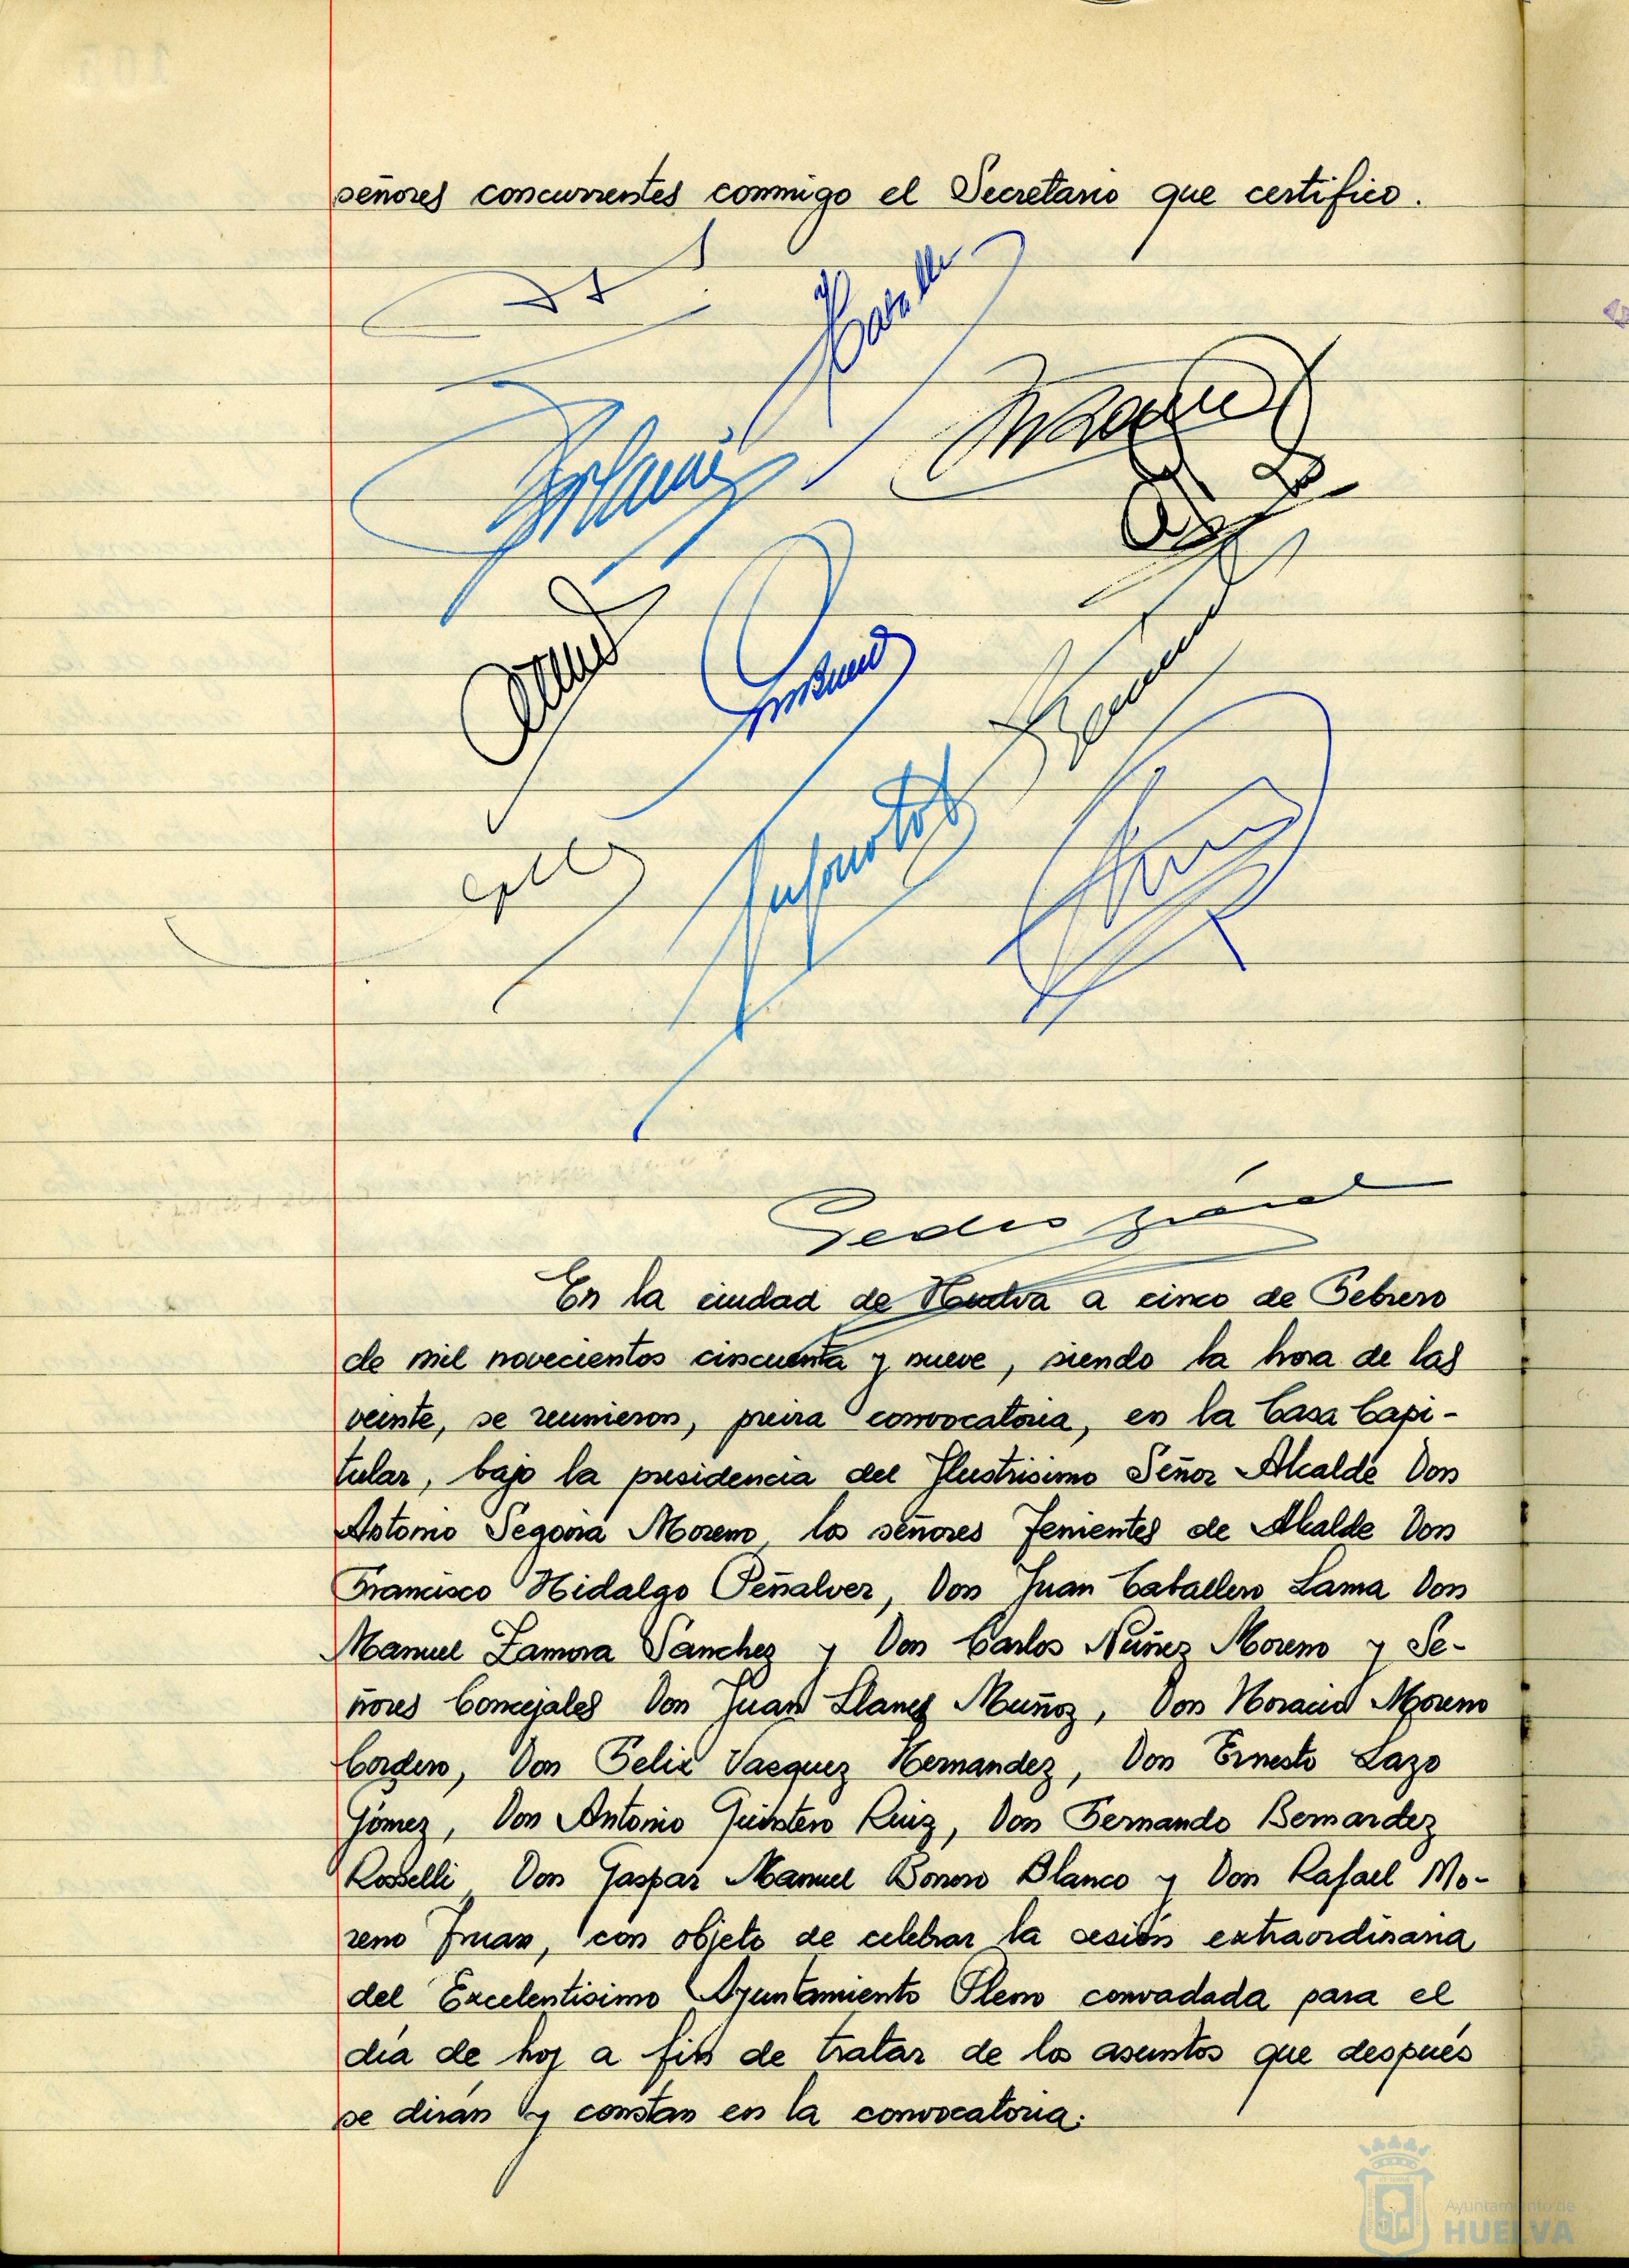 señores concurrentes conmigo el Secretario que certifico.
Pedro
En la ciudad de Huelva a cinco de Febrero
de mil novecientos cincuenta y nueve, siendo la hora de las
veinte, se reunieron, previa convocatoria, en la Casa Capi-
tular, bajo la presidencia del Ilustrisimo Señor Alcalde Don
Antonio Segovia Moreno, los señores Tenientes de Alcalde Don
Francisco Hidalgo Peñalver, Don Juan Caballero Lama Don
Manuel Zamora Sanchez y Don Carlos Nuñez Moreno y Se-
ñores Concejales Don Juan Llanes Muñoz, Don Horacio Moreno
Cordero, Don Felix Vazquez Hernandez, Don Ernesto Lazo
Gómez, Don Antonio Quintero Ruiz, Don Fernando Bernardez
Rosselli, Don Gaspar Manuel Bonoso Blanco y Don Rafael Mo-
reno con objeto de celebrar la sesión extraordinaria
del Excelentisimo Ayuntamiento Pleno convadada para el
día de hoy a fin de tratar de los asuntos que después
se dirán y constan en la convocatoria:
Ayuntamiento de
HUELVA